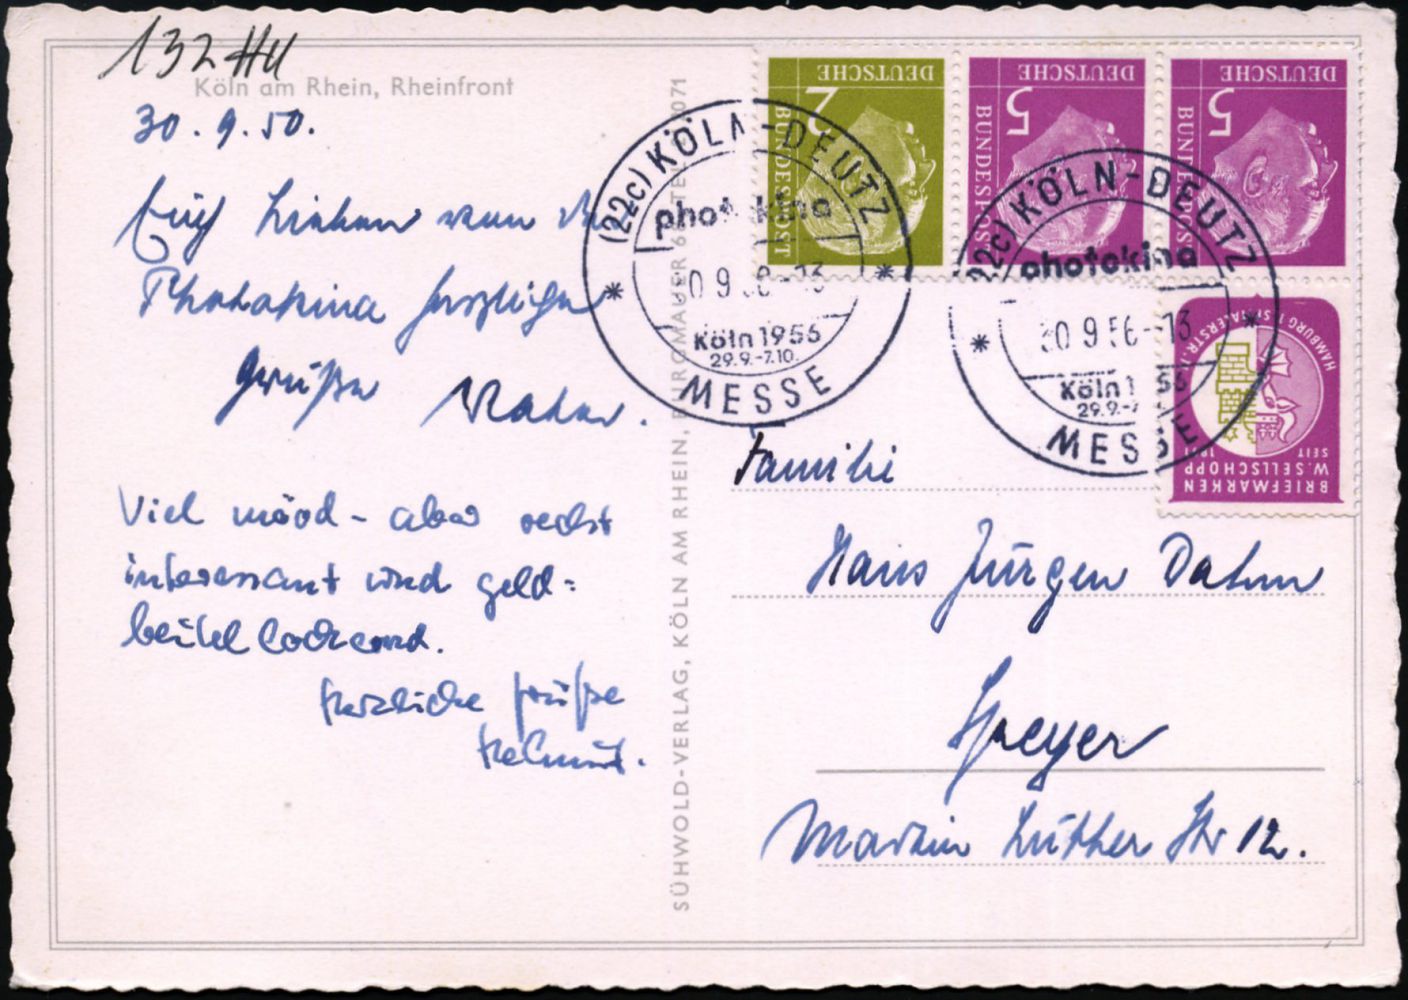 132 HU
Köln am Rhein, Rheinfront
30.9.50.
Euch Lieben von der
Photokina herzliche
Grüße
Viel mööd - aber recht
interessant und geld=
beutel lockend.
Herzliche Grüße
Helmut.
SÜHWOLD-VERLAG, KÖLN AM RHEIN, BURGMAUER 66
071
DEUTSCHE
BUNDESPOST
2
DEUTSCHE
BUNDESPOST
5
DEUTSCHE
BUNDESPOST
5
(22c) KÖLN-DEUTZ
photokina
30.9.56-13
Köln 1956
29.9.-7.10.
MESSE
(22c) KÖLN-DEUTZ
photokina
30.9.56-13
Köln 1956
29.9.-7
MESSE
HAMBURG 1
BRIEFMARKEN
W. SELLSCHOPP
SEIT 1871
Familie
Hans Jürgen Dahm
Speyer
Martin Luther Str 12.